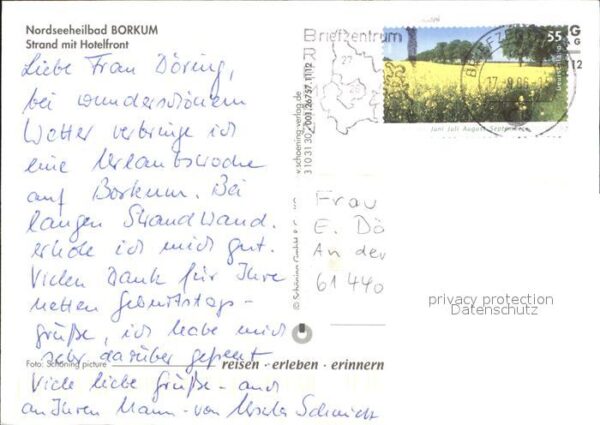 Nordseeheilbad BORKUM
Strand mit Hotelfront
Liebe Frau Döring,
bei wunderschönem
Wetter verbringe ich
eine Urlaubswoche
auf Borkum. Bei
langen Strandwand.
erhole ich mich gut.
Vielen Dank für Ihre
netten Geburtstags-
grüße, ich habe mich
sehr darüber gefreut
Viele liebe Grüße - auch
an Ihren Mann - von Ursula Schmidt
Foto: Schöning picture
reisen · erleben · erinnern
Briefzentrum
27
26
55
Juni Juli August September
Frau
E. Dö
An der
61440
privacy protection
Datenschutz